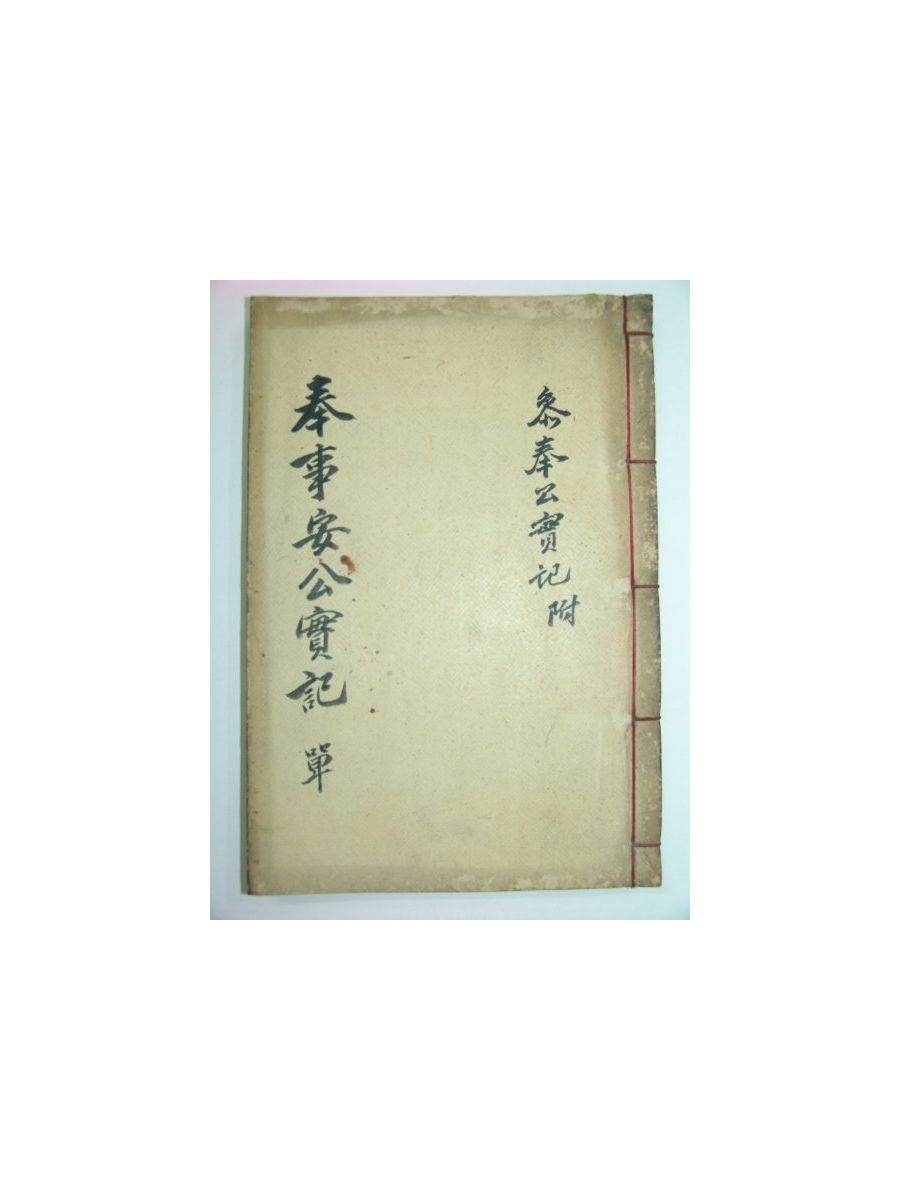 奉事安公實記 單
叅奉公實記 附